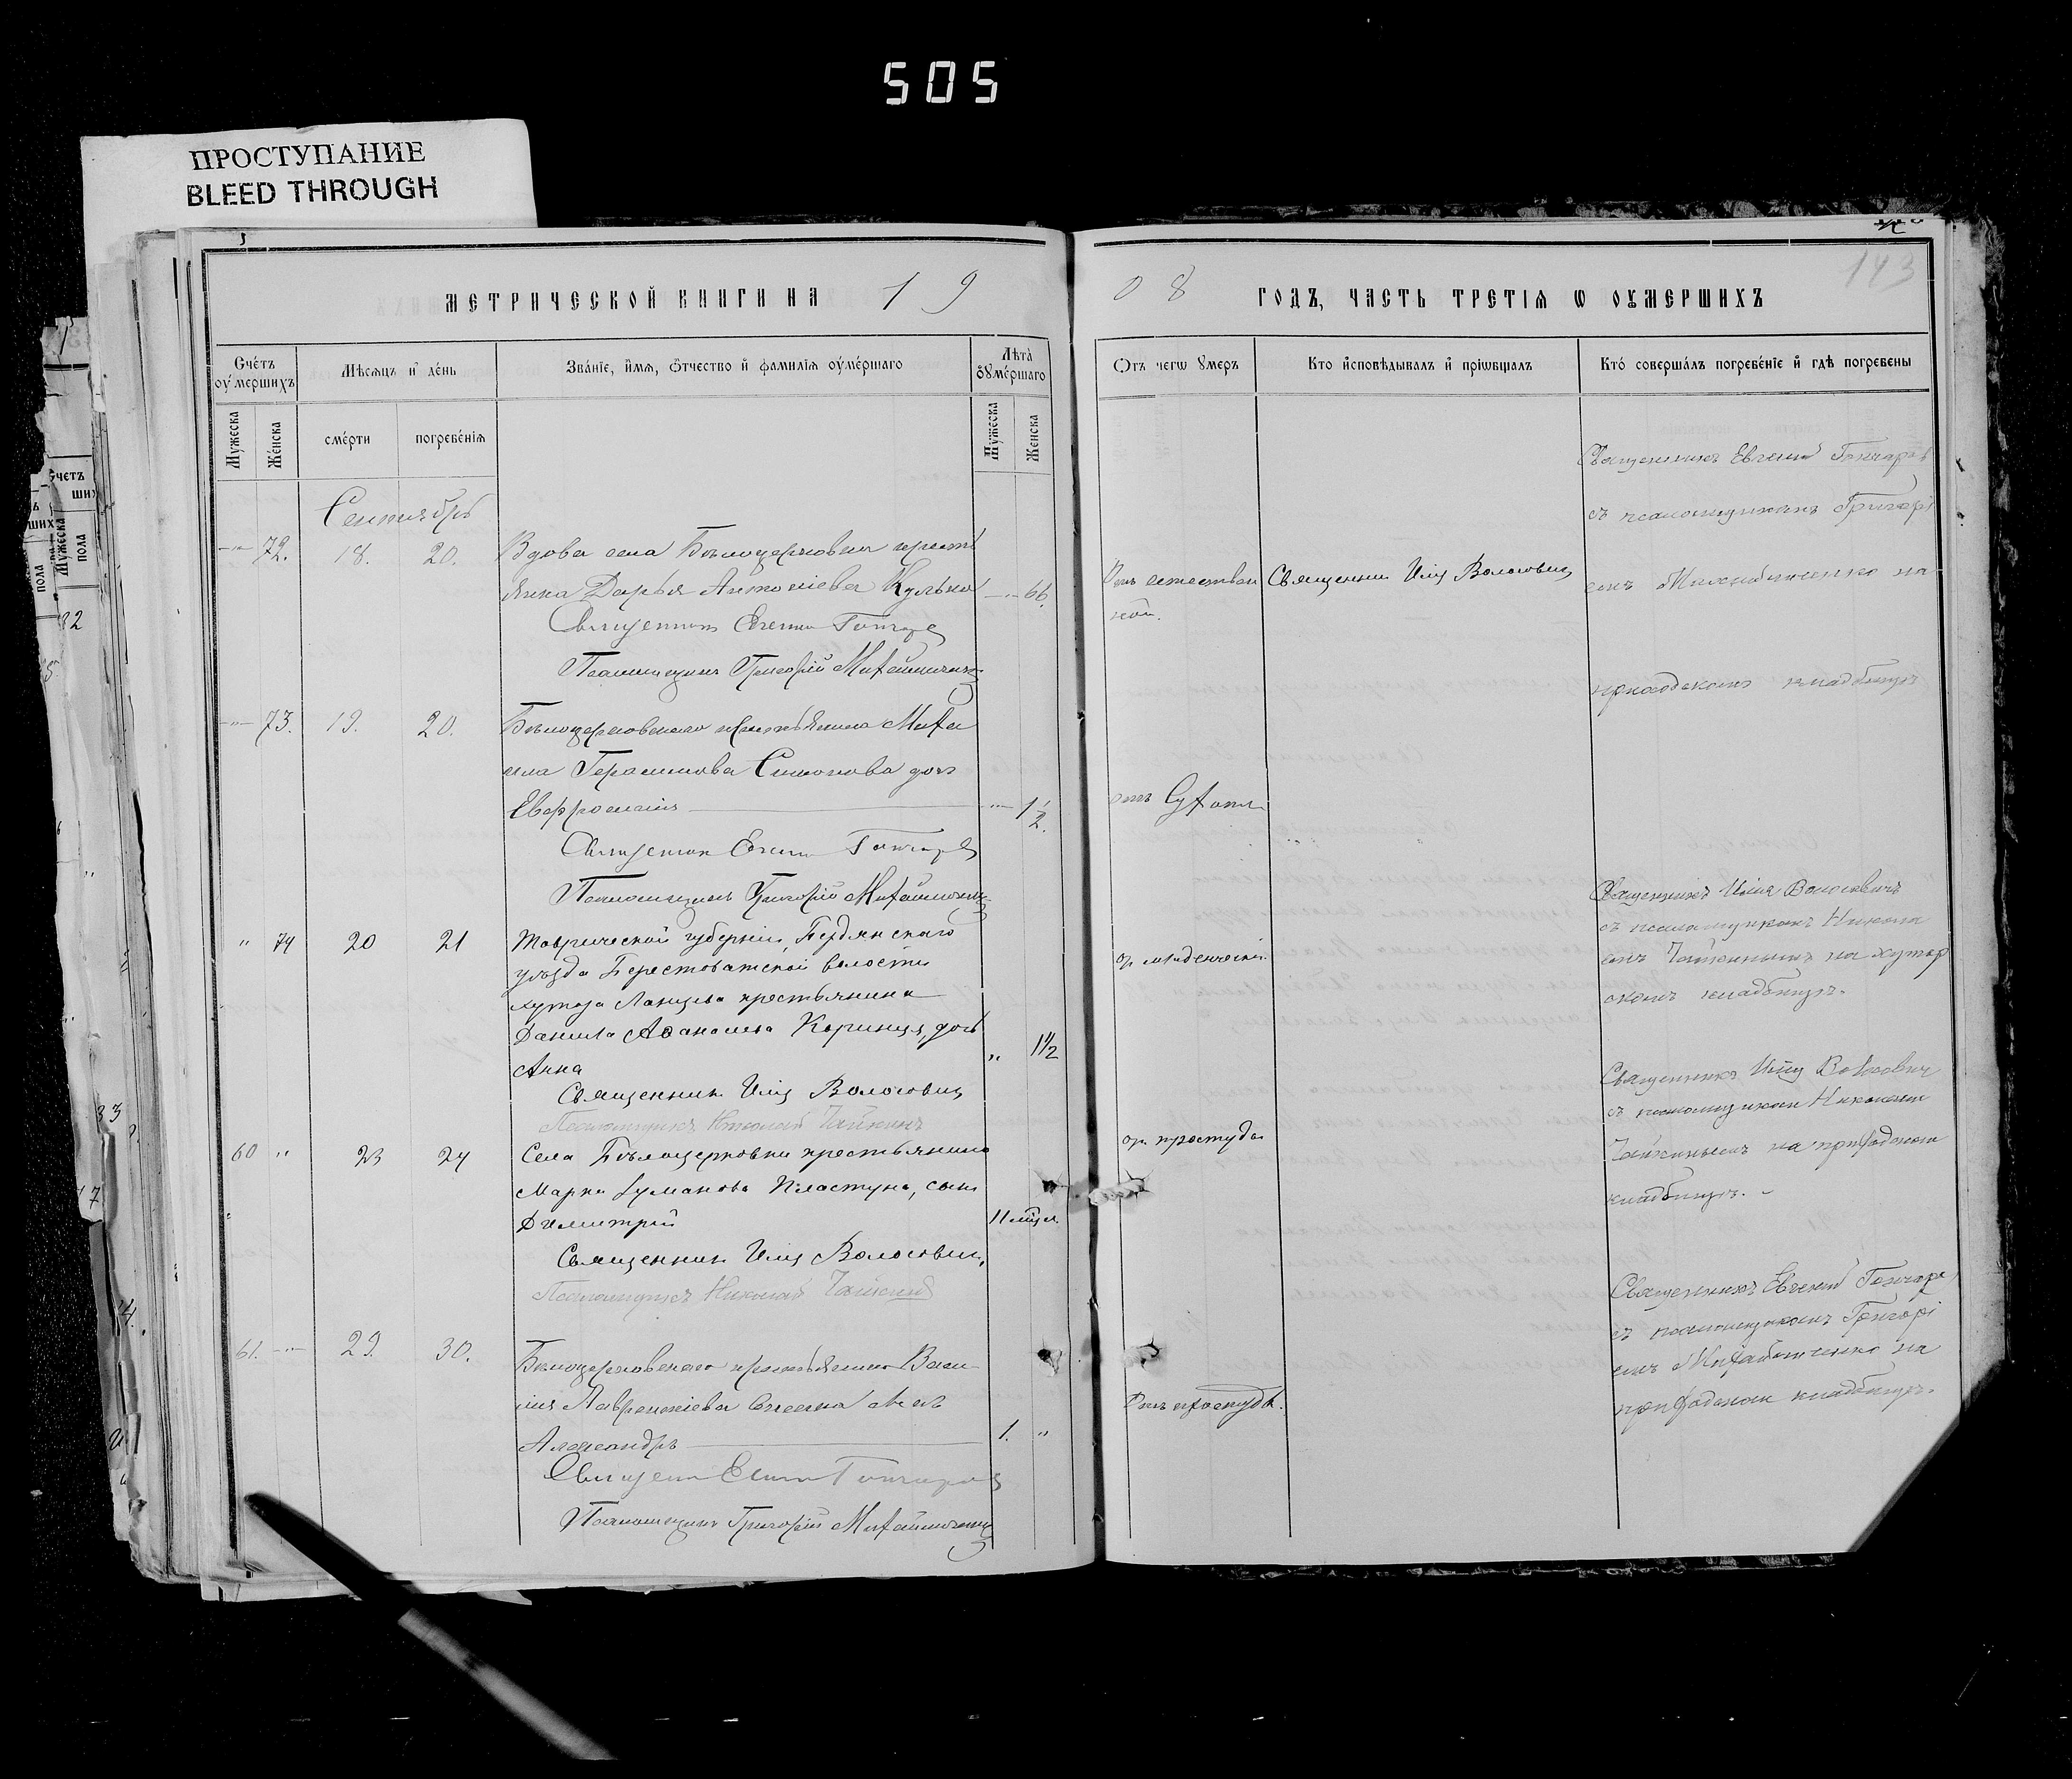 505
ПРОСТУПАНИЕ
BLEED THROUGH
143
МЕТРИЧЕСКОЙ КНИГИ НА 19
08 ГОДЪ, ЧАСТЬ ТРЕТІЯ Ѡ ОУМЕРШИХЪ
Счетъ оумершихъ
Мѣсяцъ и день
Званіе, имя, отчество и фамилія оумершаго
Лѣта оумершаго
Мужеска
Женска
смерти
погребенія
Мужеска
Женска
Отъ чегѡ умеръ
Кто исповѣдывалъ и пріѡбщалъ
Кто совершалъ погребеніе и гдѣ погребены
Сентябрь
72. 18. 20. Вдова села Бѣлоцерковки кресть
янка Дарья Антоніева 66.
Священникъ Евгеній Гончаровъ
Псаломщикъ Григорій
Отъ естествен
ной.
Священникъ Илія Волосовичъ
Священникъ Евгеній Гончаровъ
съ псаломщикомъ Григорі
емъ на
приходскомъ кладбищѣ
73. 19. 20. Бѣлоцерковскаго крестьянина Миха
ила Герасимова Симонова дочь
Евфросинія 1 1/2.
Священникъ Евгеній Гончаровъ
Псаломщикъ Григорій
отъ
" 74 20 21 Таврической губерніи, Бердянскаго
уѣзда Берестоватской волости
хутора крестьянина
Данила Аѳанасьева дочь
Анна " 1 1/2
Священникъ Илія Волосовичъ
Псаломщикъ Николай Чайкинъ
от младенческой
Священникъ Илія Волосовичъ
съ псаломщикомъ Никола
емъ Чайкинымъ на хутор
скомъ кладбищѣ.
60 " 23 24 Села Бѣлоцерковки крестьянина
Марка Пластуна, сынъ
Димитрій 11 мѣс.
Священникъ Илія Волосовичъ
Псаломщикъ Николай Чайкинъ
от простуды
Священникъ Илія Волосовичъ
съ псаломщикомъ Николаемъ
Чайкинымъ на приходском
кладбищѣ.
61. 29. 30. Бѣлоцерковскаго крестьянина Васи
лія Лаврентіева сынъ
Александръ 1. "
Священникъ Евгеній Гончаровъ
Псаломщикъ Григорій
Отъ простуды.
Священникъ Евгеній Гончаров
съ псаломщикомъ Григорі
емъ на
приходском кладбищѣ.